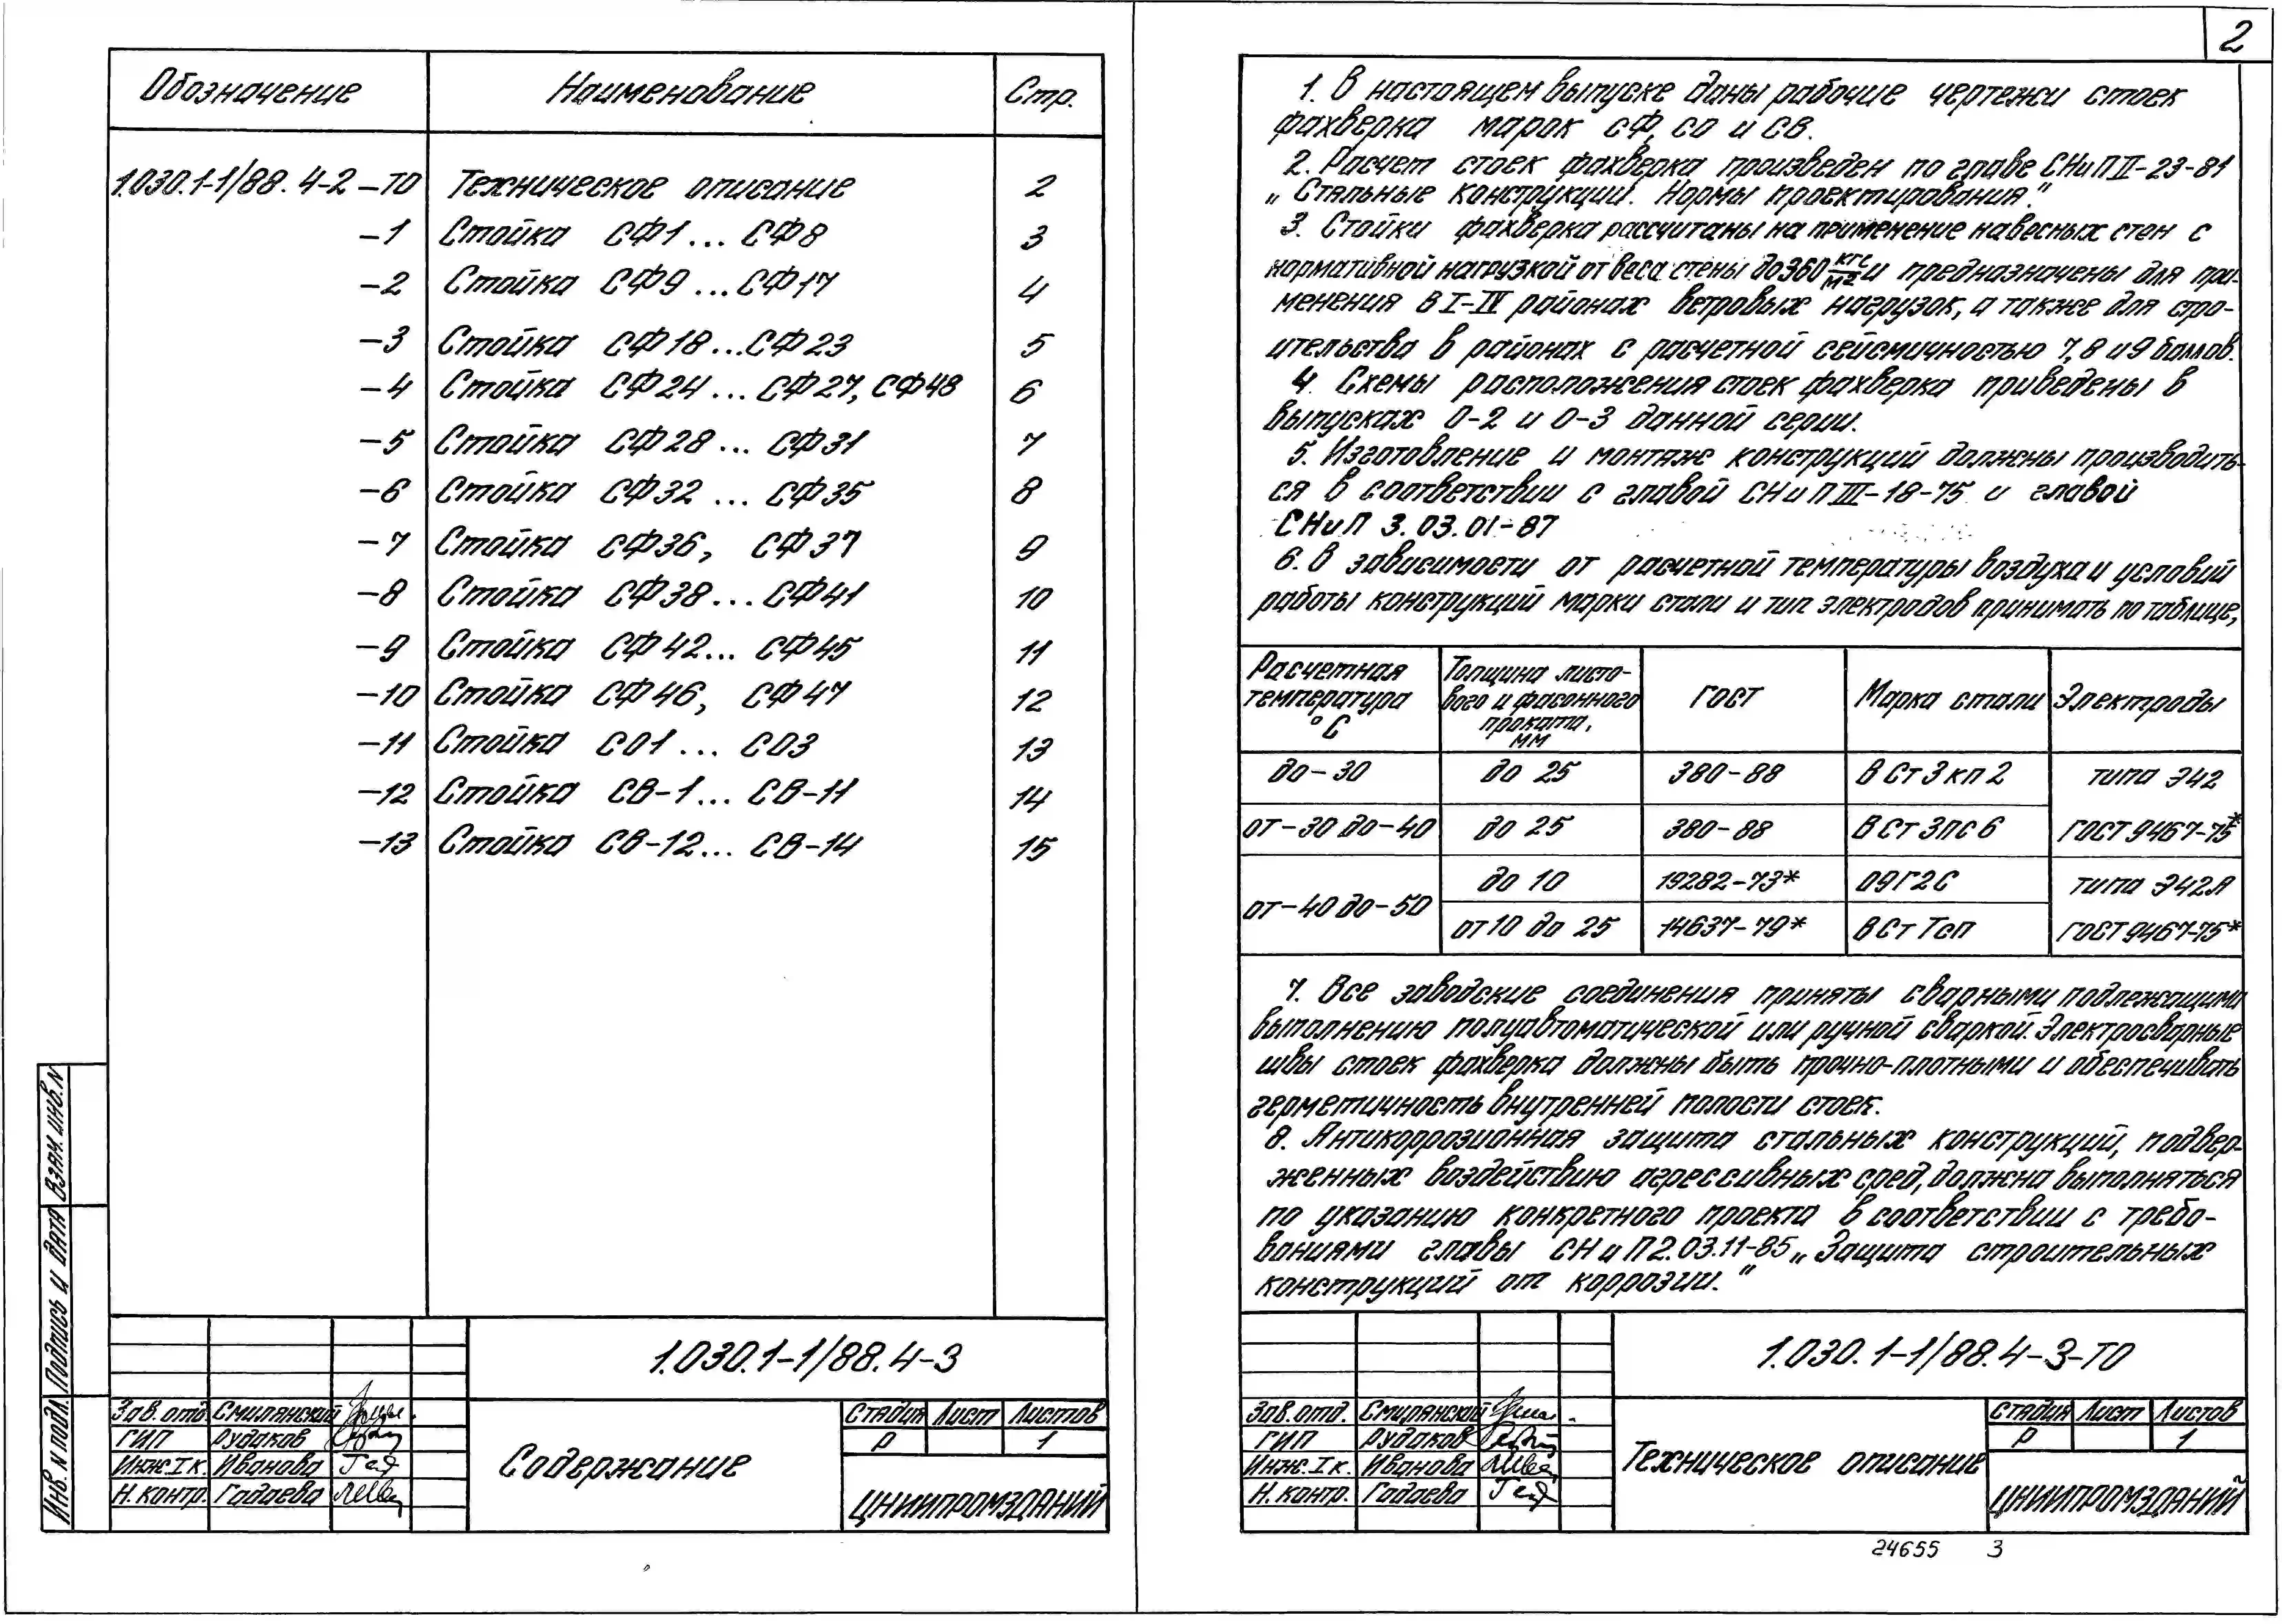 Обозначение Наименование Стр.
1.030.1-1/88. 4-2 -ТО Техническое описание 2
-1 Стойка СФ1 ... СФ8 3
-2 Стойка СФ9 ... СФ17 4
-3 Стойка СФ18 ... СФ23 5
-4 Стойка СФ24 ... СФ27, СФ48 6
-5 Стойка СФ28 ... СФ31 7
-6 Стойка СФ32 ... СФ35 8
-7 Стойка СФ36, СФ37 9
-8 Стойка СФ38 ... СФ41 10
-9 Стойка СФ42 ... СФ45 11
-10 Стойка СФ46, СФ47 12
-11 Стойка СО1 ... СО3 13
-12 Стойка СВ-1 ... СВ-11 14
-13 Стойка СВ-12 ... СВ-14 15
Взам. инв. N
Подпись и дата
Инв. N подл.
1.030.1-1/88.4-3
Зав. отд. Смилянский
ГИП Рудаков
Инж. I к. Иванова
Н. контр. Гадаева
Содержание
Стадия Лист Листов
Р 1
ЦНИИПРОМЗДАНИЙ
2
1. В настоящем выпуске даны рабочие чертежи стоек
фахверка марок СФ, СО и СВ.
2. Расчет стоек фахверка произведен по главе СНиП II-23-81
„Стальные конструкции. Нормы проектирования."
3. Стойки фахверка рассчитаны на применение навесных стен с
нормативной нагрузкой от веса стены до 360 кгс/м2 и предназначены для при-
менения в I-IV районах ветровых нагрузок, а также для стро-
ительства в районах с расчетной сейсмичностью 7, 8 и 9 баллов.
4. Схемы расположения стоек фахверка приведены в
выпусках 0-2 и 0-3 данной серии.
5. Изготовление и монтаж конструкций должны производить-
ся в соответствии с главой СНиП III-18-75 и главой
СНиП 3.03.01-87
6. В зависимости от расчетной температуры воздуха и условий
работы конструкций марки стали и тип электродов принимать по таблице,
Расчетная температура °С Толщина листо-вого и фасонного проката, мм ГОСТ Марка стали Электроды
до -30 до 25 380-88 ВСт3кп2 типа Э42
от -30 до -40 до 25 380-88 ВСт3пс6 ГОСТ 9467-75*
от -40 до -50 до 10 19282-73* 09Г2С типа Э42А
от 10 до 25 14637-79* ВСтТсп ГОСТ 9467-75*
7. Все заводские соединения приняты сварными подлежащими
выполнению полуавтоматической или ручной сваркой. Электросварные
швы стоек фахверка должны быть прочно-плотными и обеспечивать
герметичность внутренней полости стоек.
8. Антикоррозионная защита стальных конструкций, подвер-
женных воздействию агрессивных сред, должна выполняться
по указанию конкретного проекта в соответствии с требо-
ваниями главы СНиП 2.03.11-85 „Защита строительных
конструкций от коррозии."
1.030.1-1/88.4-3-ТО
Зав. отд. Смилянский
ГИП Рудаков
Инж. I к. Иванова
Н. контр. Гадаева
Техническое описание
Стадия Лист Листов
Р 1
ЦНИИПРОМЗДАНИЙ
24655 3